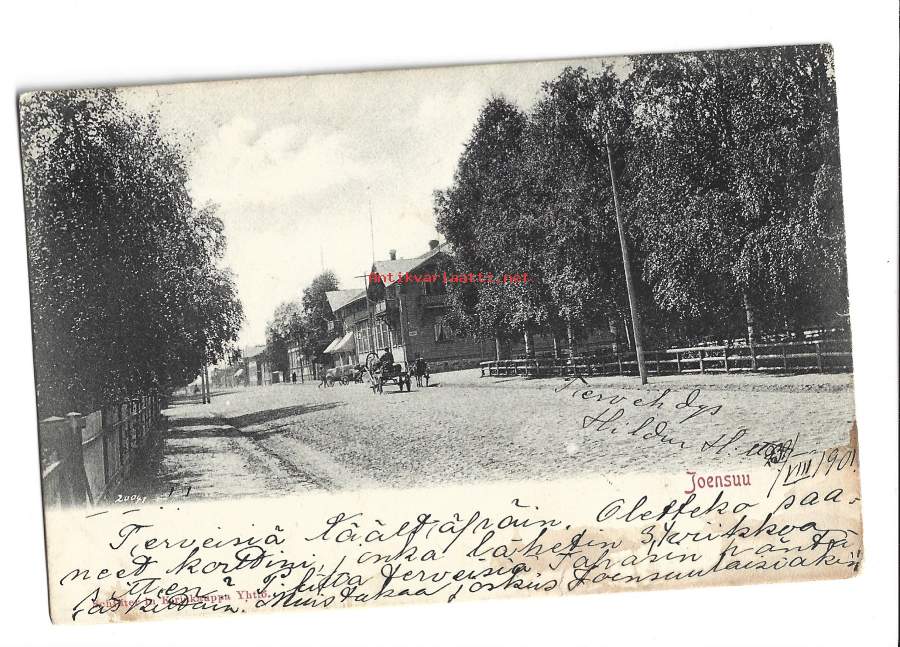 Antikvariaatti.net
Tervehdys
Hildur H.
Joensuu
/VIII 1901
20041
Terveisiä Täältäpäin. Oletteko saa-
neet korttini, jonka lähetin 3 viikkoa
sitten? terveisiä
Muistakaa joskus Joensuulaisiakin!!
Kirjakauppa Yhtiö.